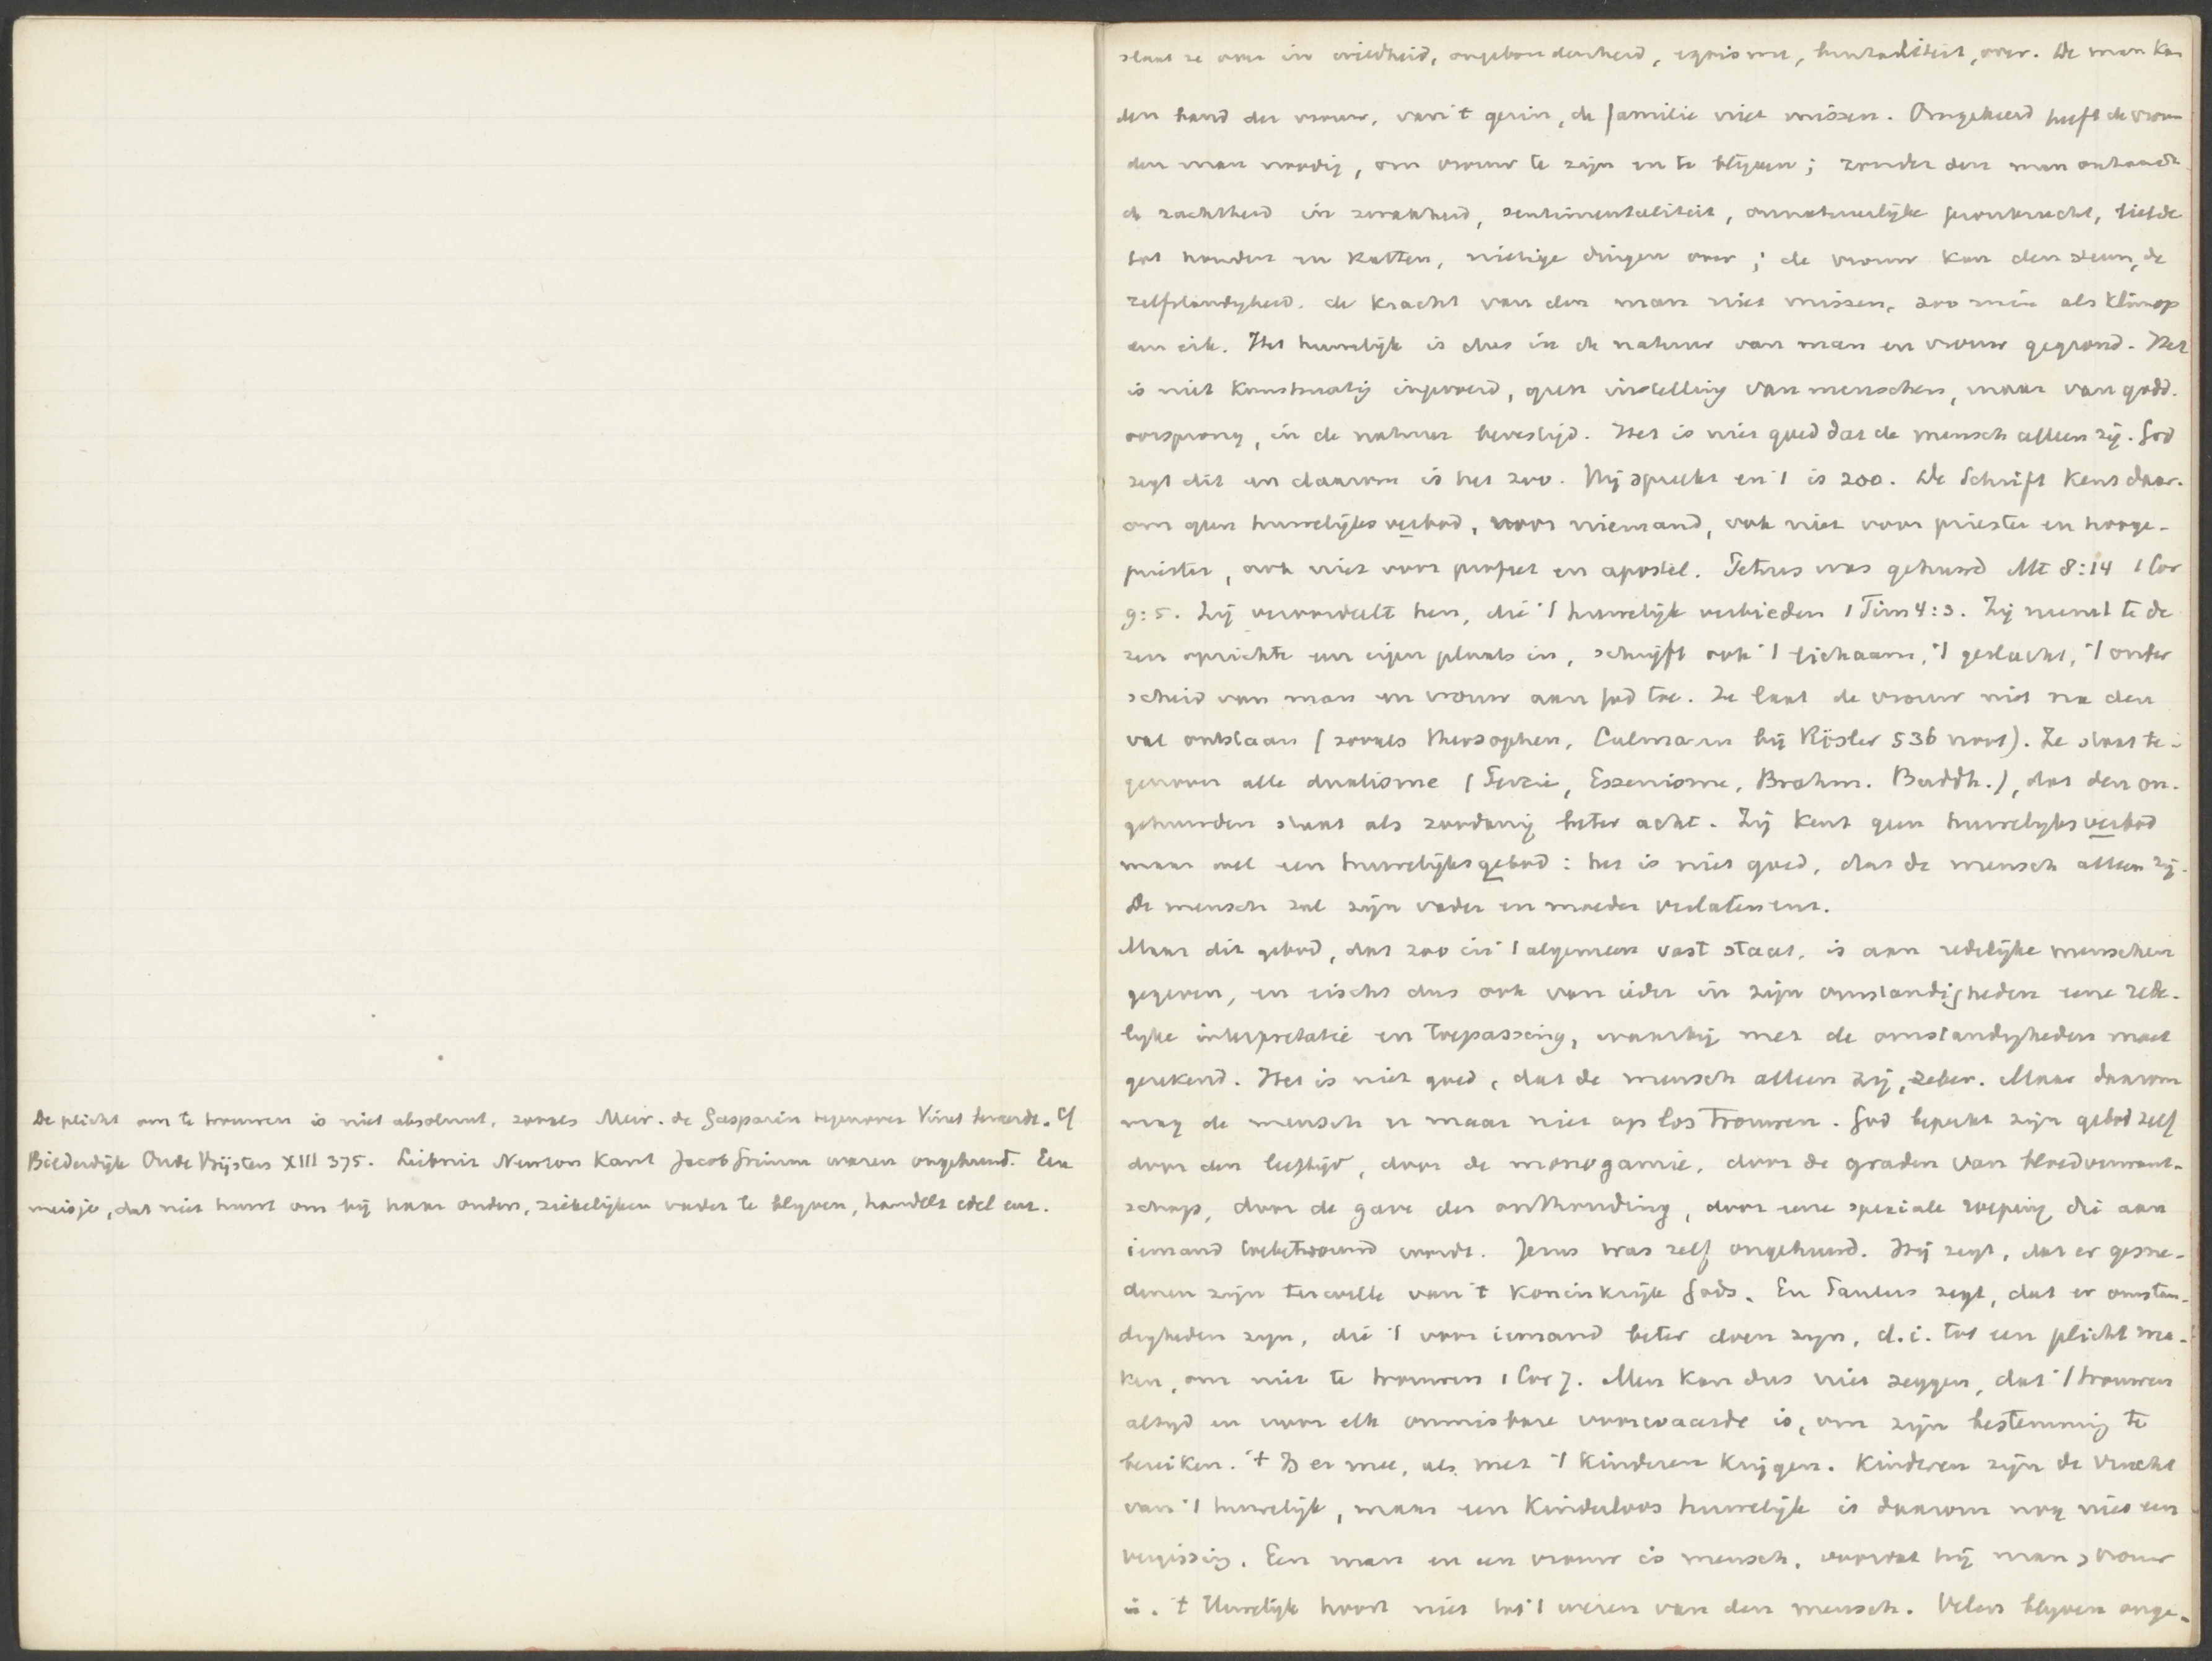 De plicht om te trouwen is niet absoluut, zooals Mevr. de Gasparin tegenover Vinet beweerde. Cf
Bilderdijk Oude Vrijsters XIII 375. Leibniz Newton Kant Jacob Grimm waren ongehuwd. Een
meisje, dat niet huwt om bij haar ouden, ziekelijken vader te blijven, handelt edel enz.
slaat ze over in wildheid, ongebondenheid, egoisme, brutaliteit, over. De man kan
den band der vrouw, van 't gezin, de familie niet missen. Omgekeerd heeft de vrouw
den man noodig, om vrouw te zijn en te blijven; zonder den man ontaardt
de zachtheid in zwakheid, sentimentaliteit, onnatuurlijke pronkzucht, liefde
tot honden en katten, nietige dingen over; de vrouw kan den steun, de
zelfstandigheid, de kracht van den man niet missen, zoo min als klimop
een eik. Het huwelijk is dus in de natuur van man en vrouw gegrond. Het
is niet kunstmatig ingevoerd, geen instelling van menschen, maar van godd.
oorsprong, in de natuur bevestigd. Het is niet goed dat de mensch alleen zij. God
zegt dit en daarom is het zoo. Hij spreekt en 't is zoo. De Schrift kent daar-
om geen huwelijksverbod, voor niemand, ook niet voor priester en hooge-
priester, ook niet voor profeet en apostel. Petrus was gehuwd Mt 8:14 1 Cor
9:5. Zij veroordeelt hen, die 't huwelijk verbieden 1 Tim 4:3. Zij neemt te de
zen opzichte een eigen plaats in, schrijft ook 't lichaam, 't geslacht, 't onder
scheid van man en vrouw aan God toe. Ze laat de vrouw niet na den
val ontstaan (zooals theosophen, Culmann bij Rösler 536 noot). Ze staat te-
genover alle dualisme (Perzië, Essenisme, Brahm. Buddh.), dat den on-
gehuwden staat als zoodanig beter acht. Zij kent geen huwelijksverbod
maar wel een huwelijksgebod: het is niet goed, dat de mensch alleen zij.
De mensch zal zijn vader en moeder verlaten enz.
Maar dit gebod, dat zoo in 't algemeen vast staat, is aan redelijke menschen
gegeven, en eischt dus ook van ieder in zijn omstandigheden eene rede-
lijke interpretatie en toepassing, waarbij met de omstandigheden moet
gerekend. Het is niet goed, dat de mensch alleen zij, zeker. Maar daarom
mag de mensch er maar niet op los trouwen. God beperkt zijn gebod zelf
door den leeftijd, door de monogamie, door de graden van bloedverwant-
schap, door de gave der onthouding, door eene speciale roeping die aan
iemand toebetrouwd wordt. Jezus was zelf ongehuwd. Hij zegt, dat er gesne-
denen zijn terwille van 't Koninkrijk Gods. En Paulus zegt, dat er omstan-
digheden zijn, die 't voor iemand beter doen zijn, d.i. tot een plicht ma-
ken, om niet te trouwen 1 Cor 7. Men kan dus niet zeggen, dat 't trouwen
altijd en voor elk onmisbare voorwaarde is, om zijn bestemming te
bereiken. 't Is er mee, als met 't kinderen krijgen. Kinderen zijn de vrucht
van 't huwelijk, maar een kinderloos huwelijk is daarom nog niet een
vergissing. Een man en een vrouw is mensch, voordat hij man, vrouw
is. 't Huwelijk hoort niet tot 't wezen van den mensch. Velen blijven onge-